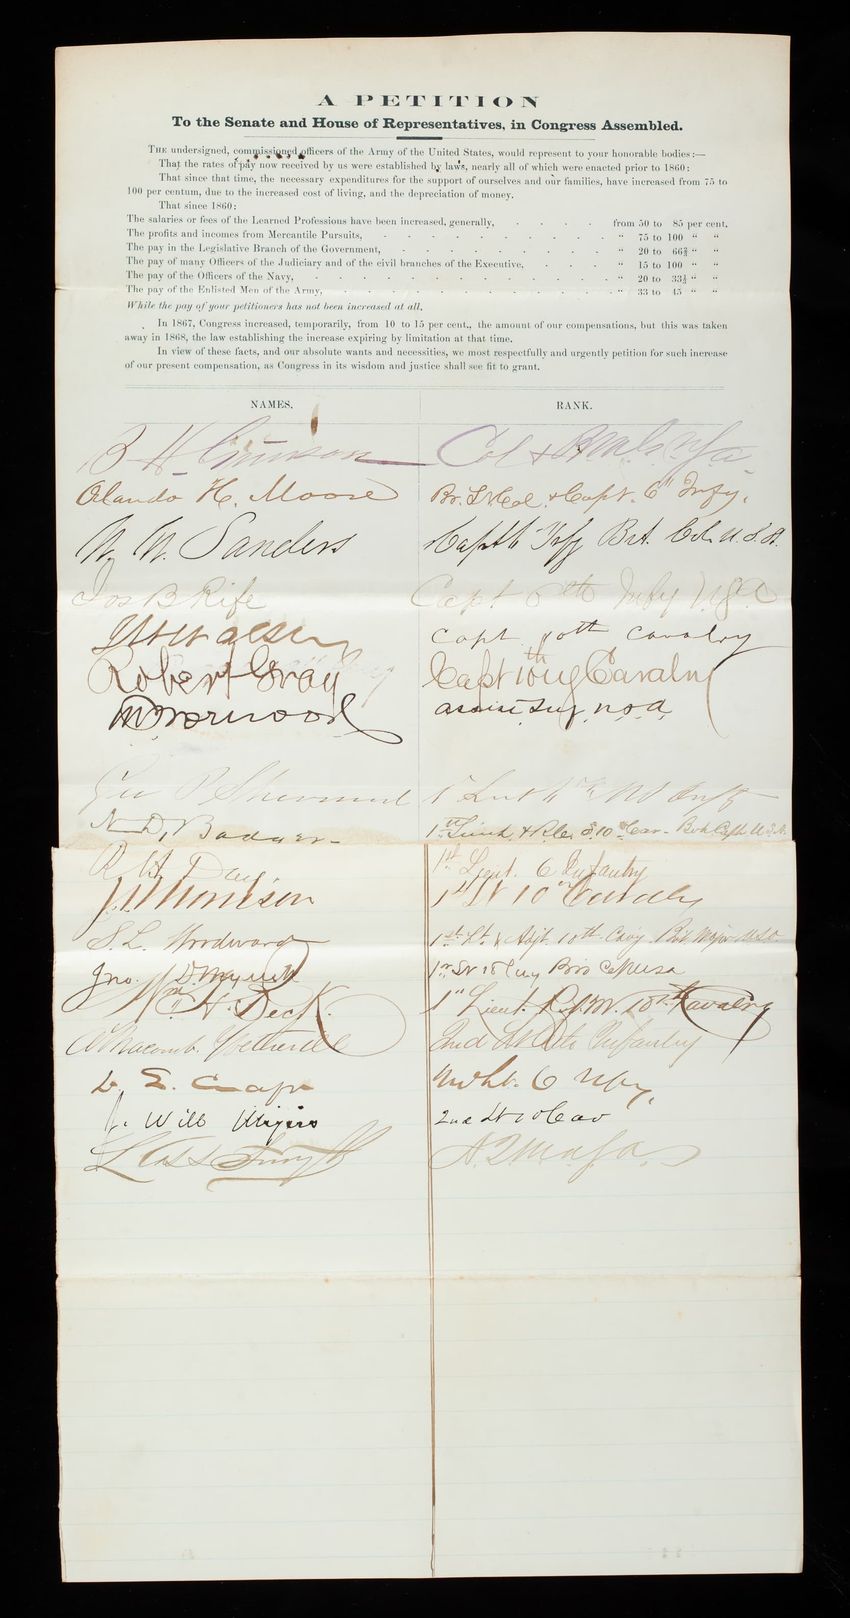 A PETITION
To the Senate and House of Representatives, in Congress Assembled.
THE undersigned, commissioned officers of the Army of the United States, would represent to your honorable bodies:—
That the rates of pay now received by us were established by laws, nearly all of which were enacted prior to 1860:
That since that time, the necessary expenditures for the support of ourselves and our families, have increased from 75 to
100 per centum, due to the increased cost of living, and the depreciation of money.
That since 1860:
The salaries or fees of the Learned Professions have been increased, generally, from 50 to 85 per cent.
The profits and incomes from Mercantile Pursuits, " 75 to 100 " "
The pay in the Legislative Branch of the Government, " 20 to 66⅔ " "
The pay of many Officers of the Judiciary and of the civil branches of the Executive, " 15 to 100 " "
The pay of the Officers of the Navy, " 20 to 33⅓ " "
The pay of the Enlisted Men of the Army, " 33 to 45 " "
While the pay of your petitioners has not been increased at all.
In 1867, Congress increased, temporarily, from 10 to 15 per cent., the amount of our compensations, but this was taken
away in 1868, the law establishing the increase expiring by limitation at that time.
In view of these facts, and our absolute wants and necessities, we most respectfully and urgently petition for such increase
of our present compensation, as Congress in its wisdom and justice shall see fit to grant.
NAMES. RANK.
B H Grierson Col &
Orlando H. Moore Bv. Lt Col. & Capt. 6" Infy.
W. W. Sanders Capt 6 Infy Bvt. Col. U.S.A.
Jos B Rife Capt 6th Infy U.S.A
Capt 10th Cavalry
Robert Gray Capt 10th Cavalry
Geo P Sherwood 1" Lieut
N. D. Badger 1st Lieut. & 10 Cav. Bvt Capt U.S.A.
R. H. Day. 1st Lieut. 6 Infantry
J. T. Morrison 1st Lt 10" Cavalry
S. L. Woodward 1st Lt. & Adjt. 10th Cavy Bvt. Major U.S.A.
Jno.
Wm H. Beck. 1" Lieut. R.Q.M. 10th Cavalry
A Macomb. Wetherill 2nd Lt 6th Infantry
2nd Lt. 6 Infy.
J. Will Myers 2nd Lt 10 Cav
L Cass Forsyth